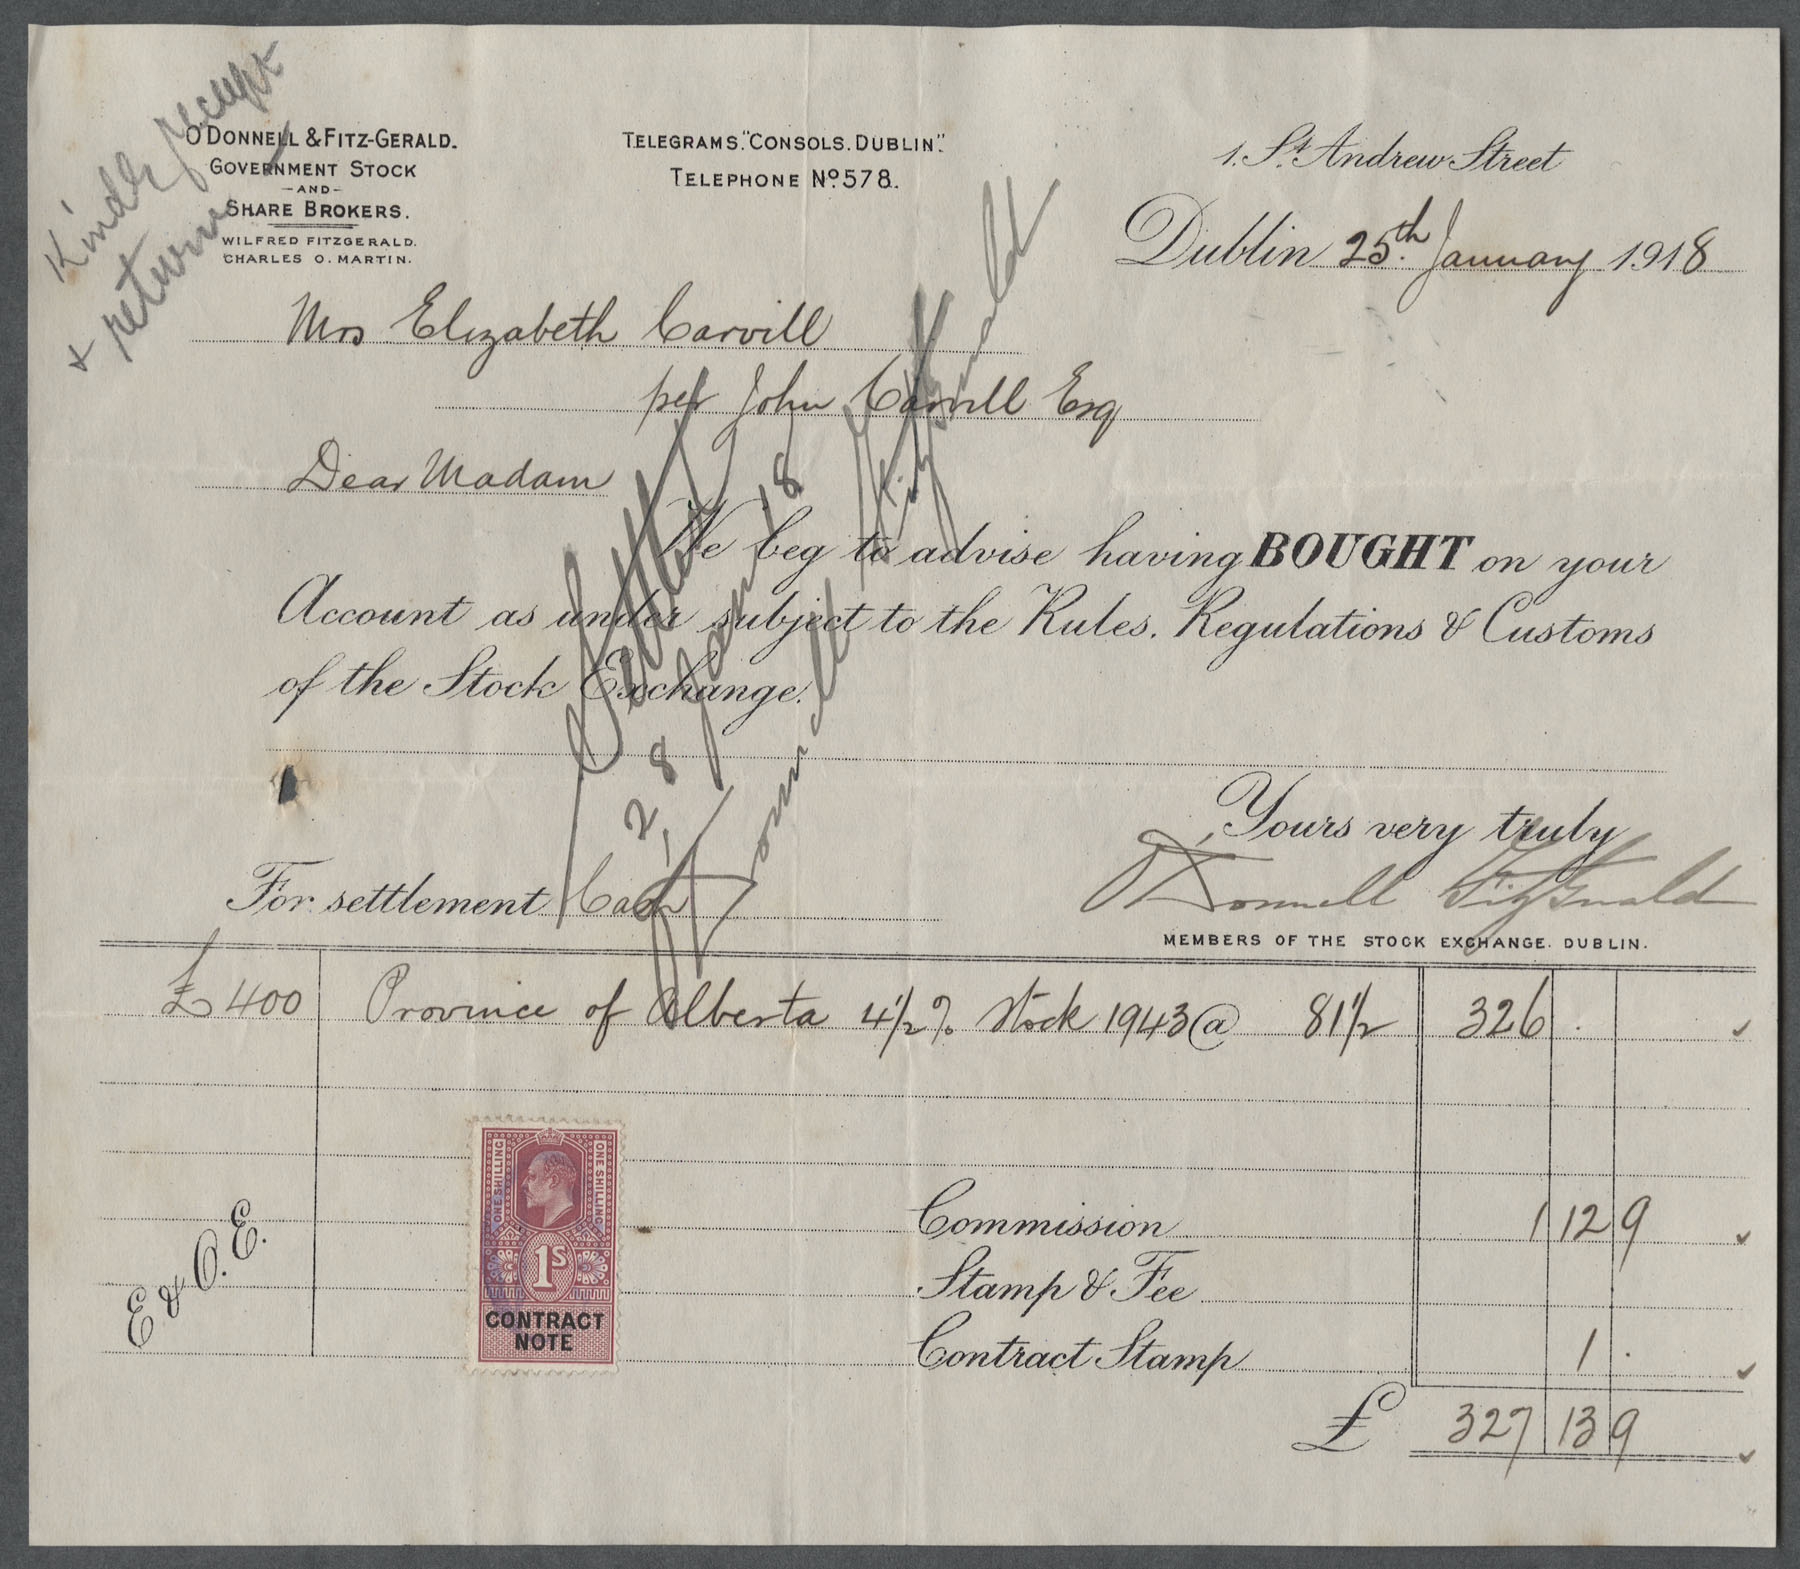 Kindly receipt
& return
O'DONNELL & FITZ-GERALD.
GOVERNMENT STOCK
-AND-
SHARE BROKERS.
WILFRED FITZGERALD.
CHARLES O. MARTIN.
TELEGRAMS. "CONSOLS. DUBLIN".
TELEPHONE No. 578.
1. St. Andrew Street
Dublin 25th. January 1918
Mrs Elizabeth Carvill
per John Carvill Esq
Dear Madam
We beg to advise having BOUGHT on your
Account as under subject to the Rules. Regulations & Customs
of the Stock Exchange.
Settled
28 Jany 18
O'Donnell Fitzgerald
Yours very truly
O'Donnell FitzGerald
MEMBERS OF THE STOCK EXCHANGE. DUBLIN.
For settlement Cash
£400 Province of Alberta 4 1/2 % Stock 1943 @ 81 1/2 326 .
ONE SHILLING
ONE SHILLING
1S
CONTRACT
NOTE
E & O.E.
Commission 1 12 9
Stamp & Fee
Contract Stamp 1 .
£ 327 13 9